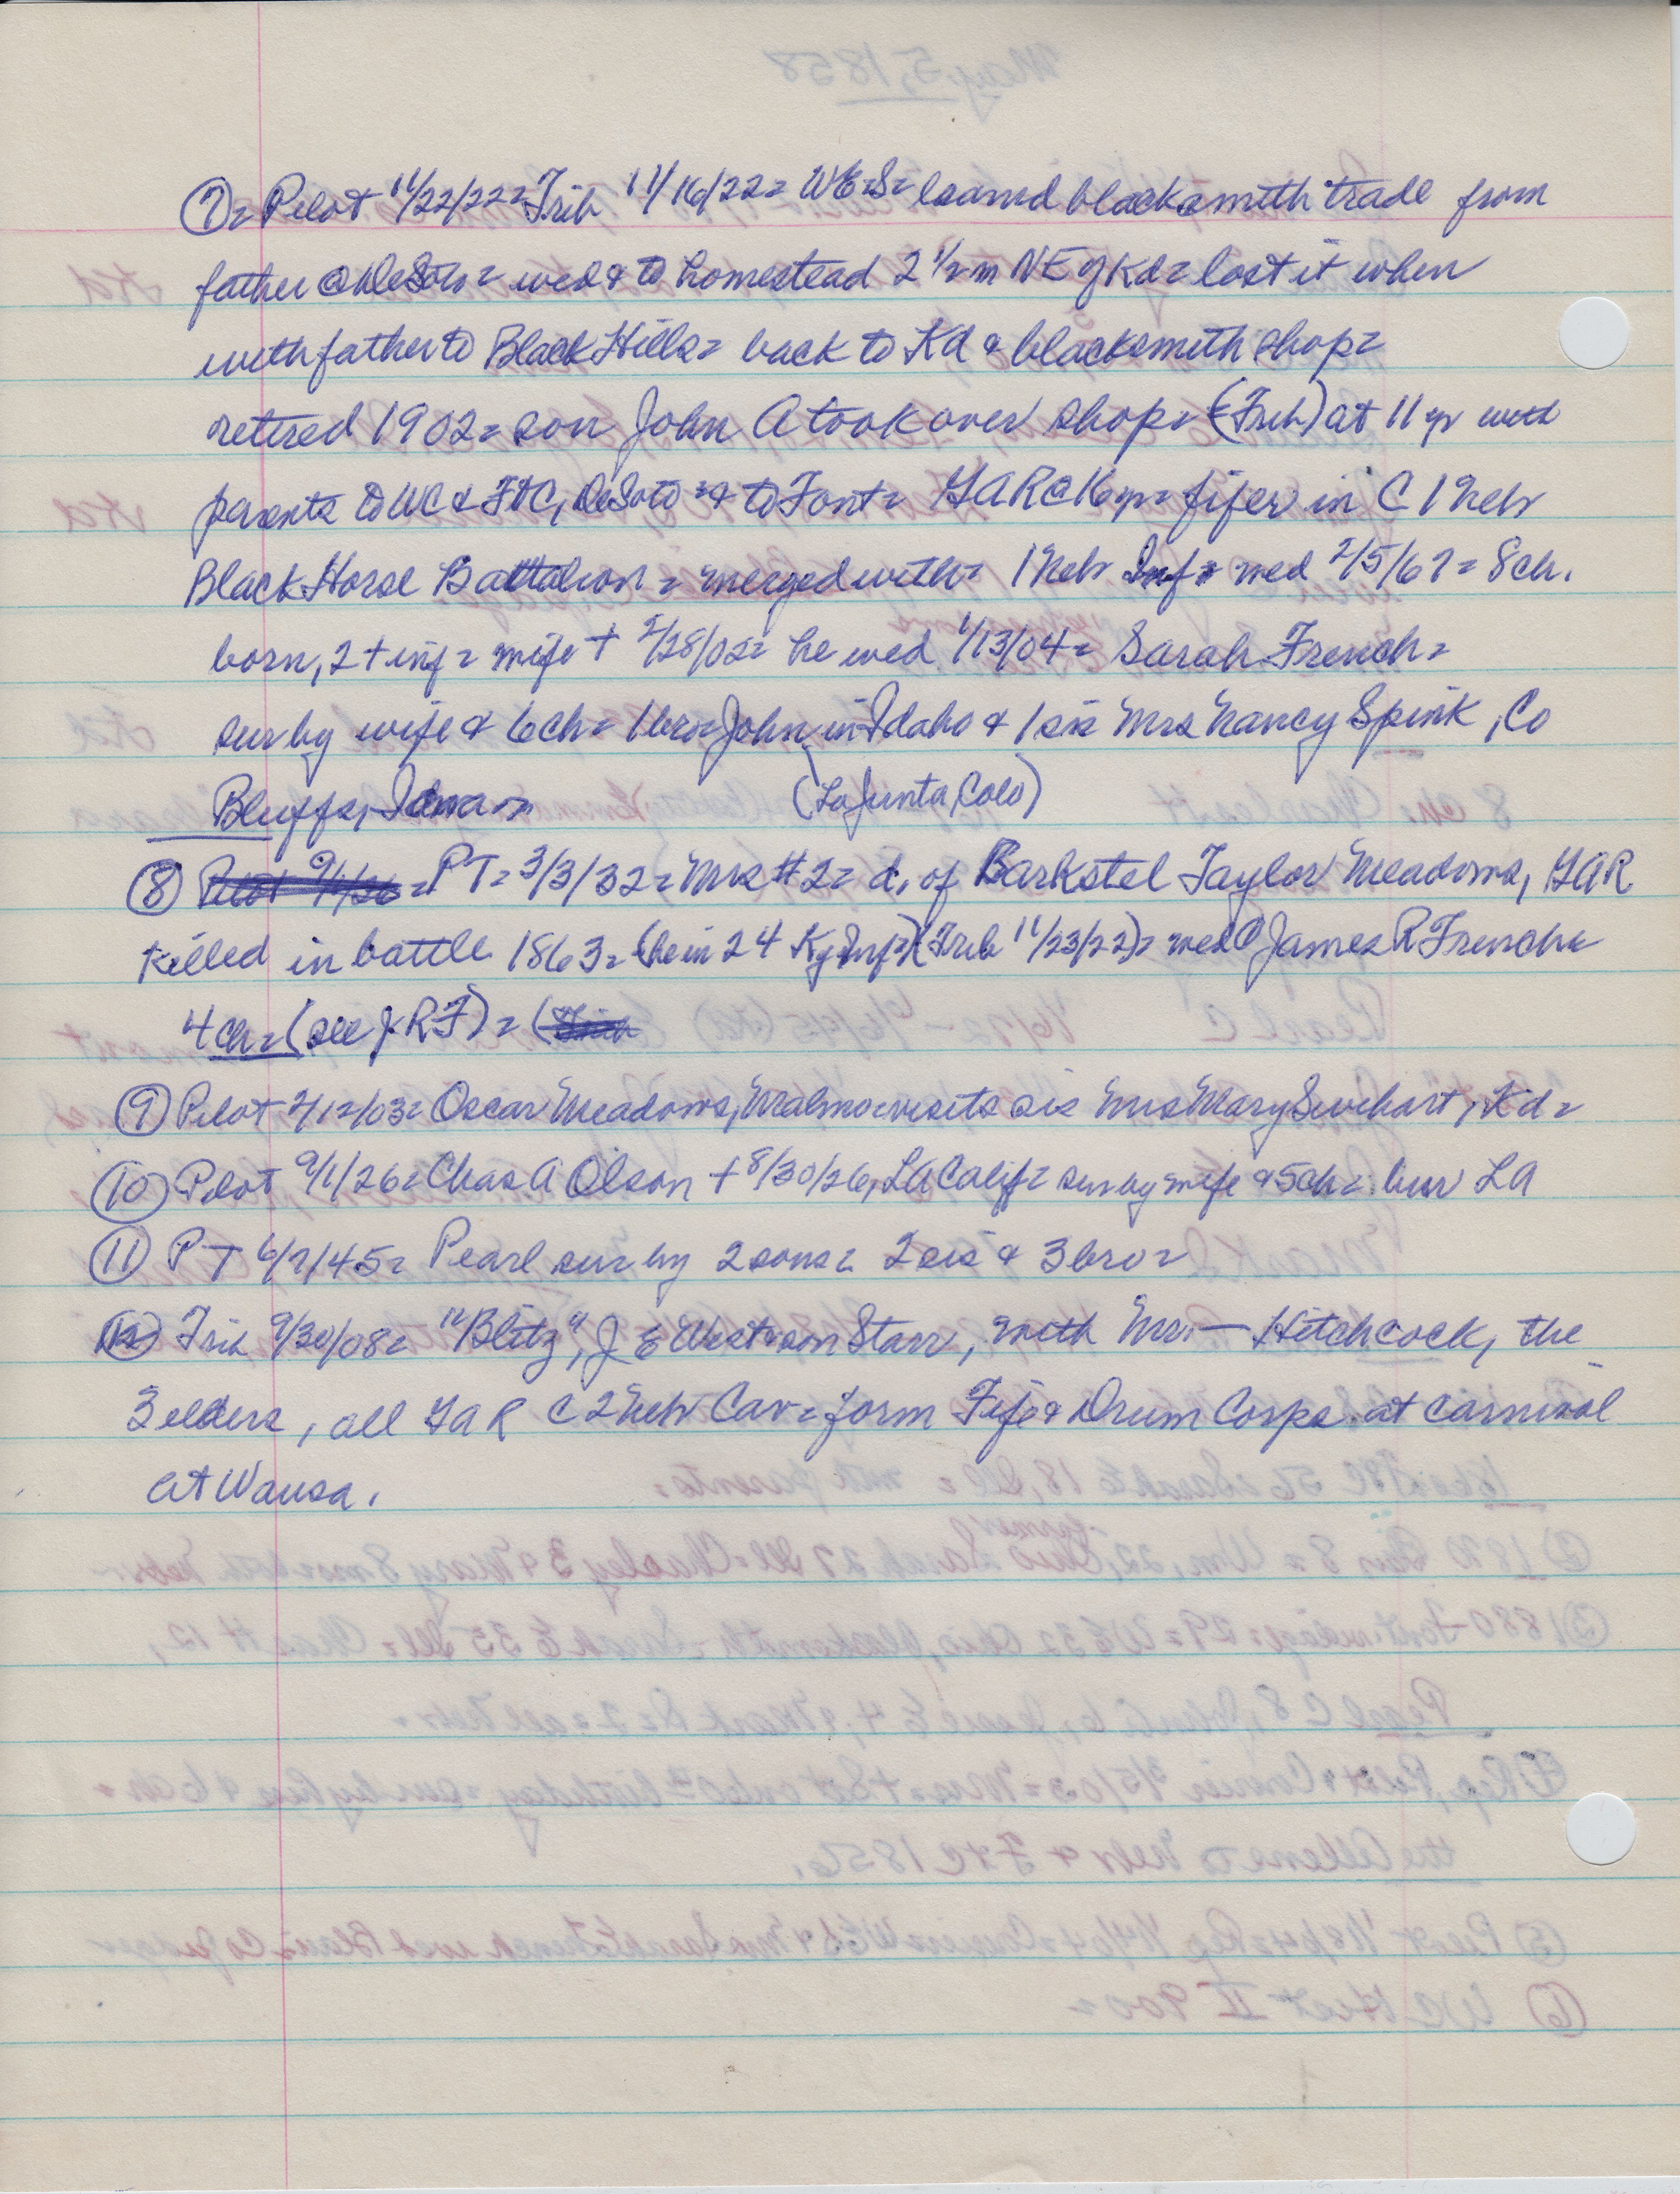 ⑦= Pilot 11/22/22= Trib 11/16/22= WES= learned blacksmith trade from
father @ DeSoto= wed & to homestead 2 1/2 m NE of Kd= lost it when
with father to Black Hills= back to Kd & blacksmith shop=
retired 1902= son John A took over shop= (Trib) at 11 yr with
parents to WC & FtC, DeSoto & to Font= GAR @ 16 yr= fifer in C 1 Nebr
Black Horse Battalion= merged with= 1 Nebr Inf= wed 2/5/67= 8 ch.
born, 2 + inf= wife + 2/28/02= he wed 1/13/04= Sarah French=
sur by wife & 6 ch= 1 bro= John in Idaho & 1 sis Mrs Nancy Spink, Co
Bluffs, Iowa=
(La Junta, Colo)
⑧ Pilot 9/1/26 = PT= 3/3/32= Mrs #2= d. of Barkstel Taylor Meadows, GAR
killed in battle 1863= (he in 24 Ky Inf=) (Trib 11/23/22)= wed James R French=
4 ch= (see J R F) = (
⑨ Pilot 2/12/03= Oscar Meadows, Malmo= visits sis Mrs Mary Swihart, Kd=
⑩ Pilot 9/1/26= Chas A Olson + 8/30/26, LA Calif= sur by wife & 5 ch= bur LA
⑪ PT 6/7/45= Pearl sur by 2 sons= 2 sis & 3 bro=
⑫ Trib 9/30/08= "Blitz", J E West= son Starr, with Mr. — Hitchcock, the
3 elders, all GAR C 2 Nebr Cav= form Fife & Drum Corps at carnival
at Wausa.